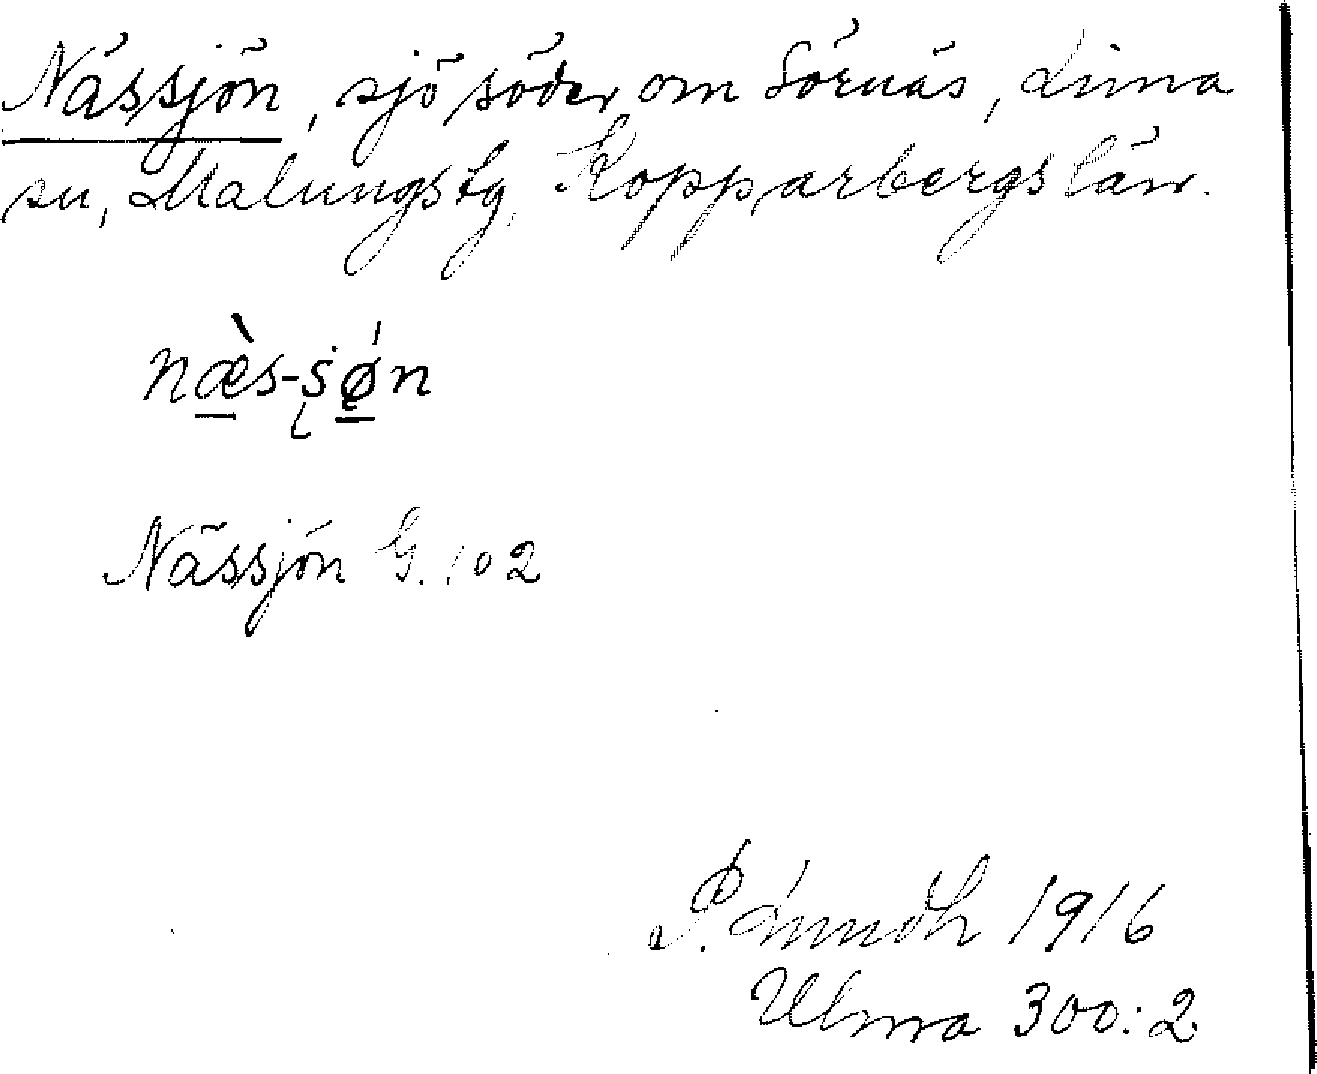 Nässjön, sjö söder om Sörnäs, Lima
sn, Malungstg, Kopparbergs län.
næ̀s-sǿn
Nässjön G. 102
1916
Ulma 300:2